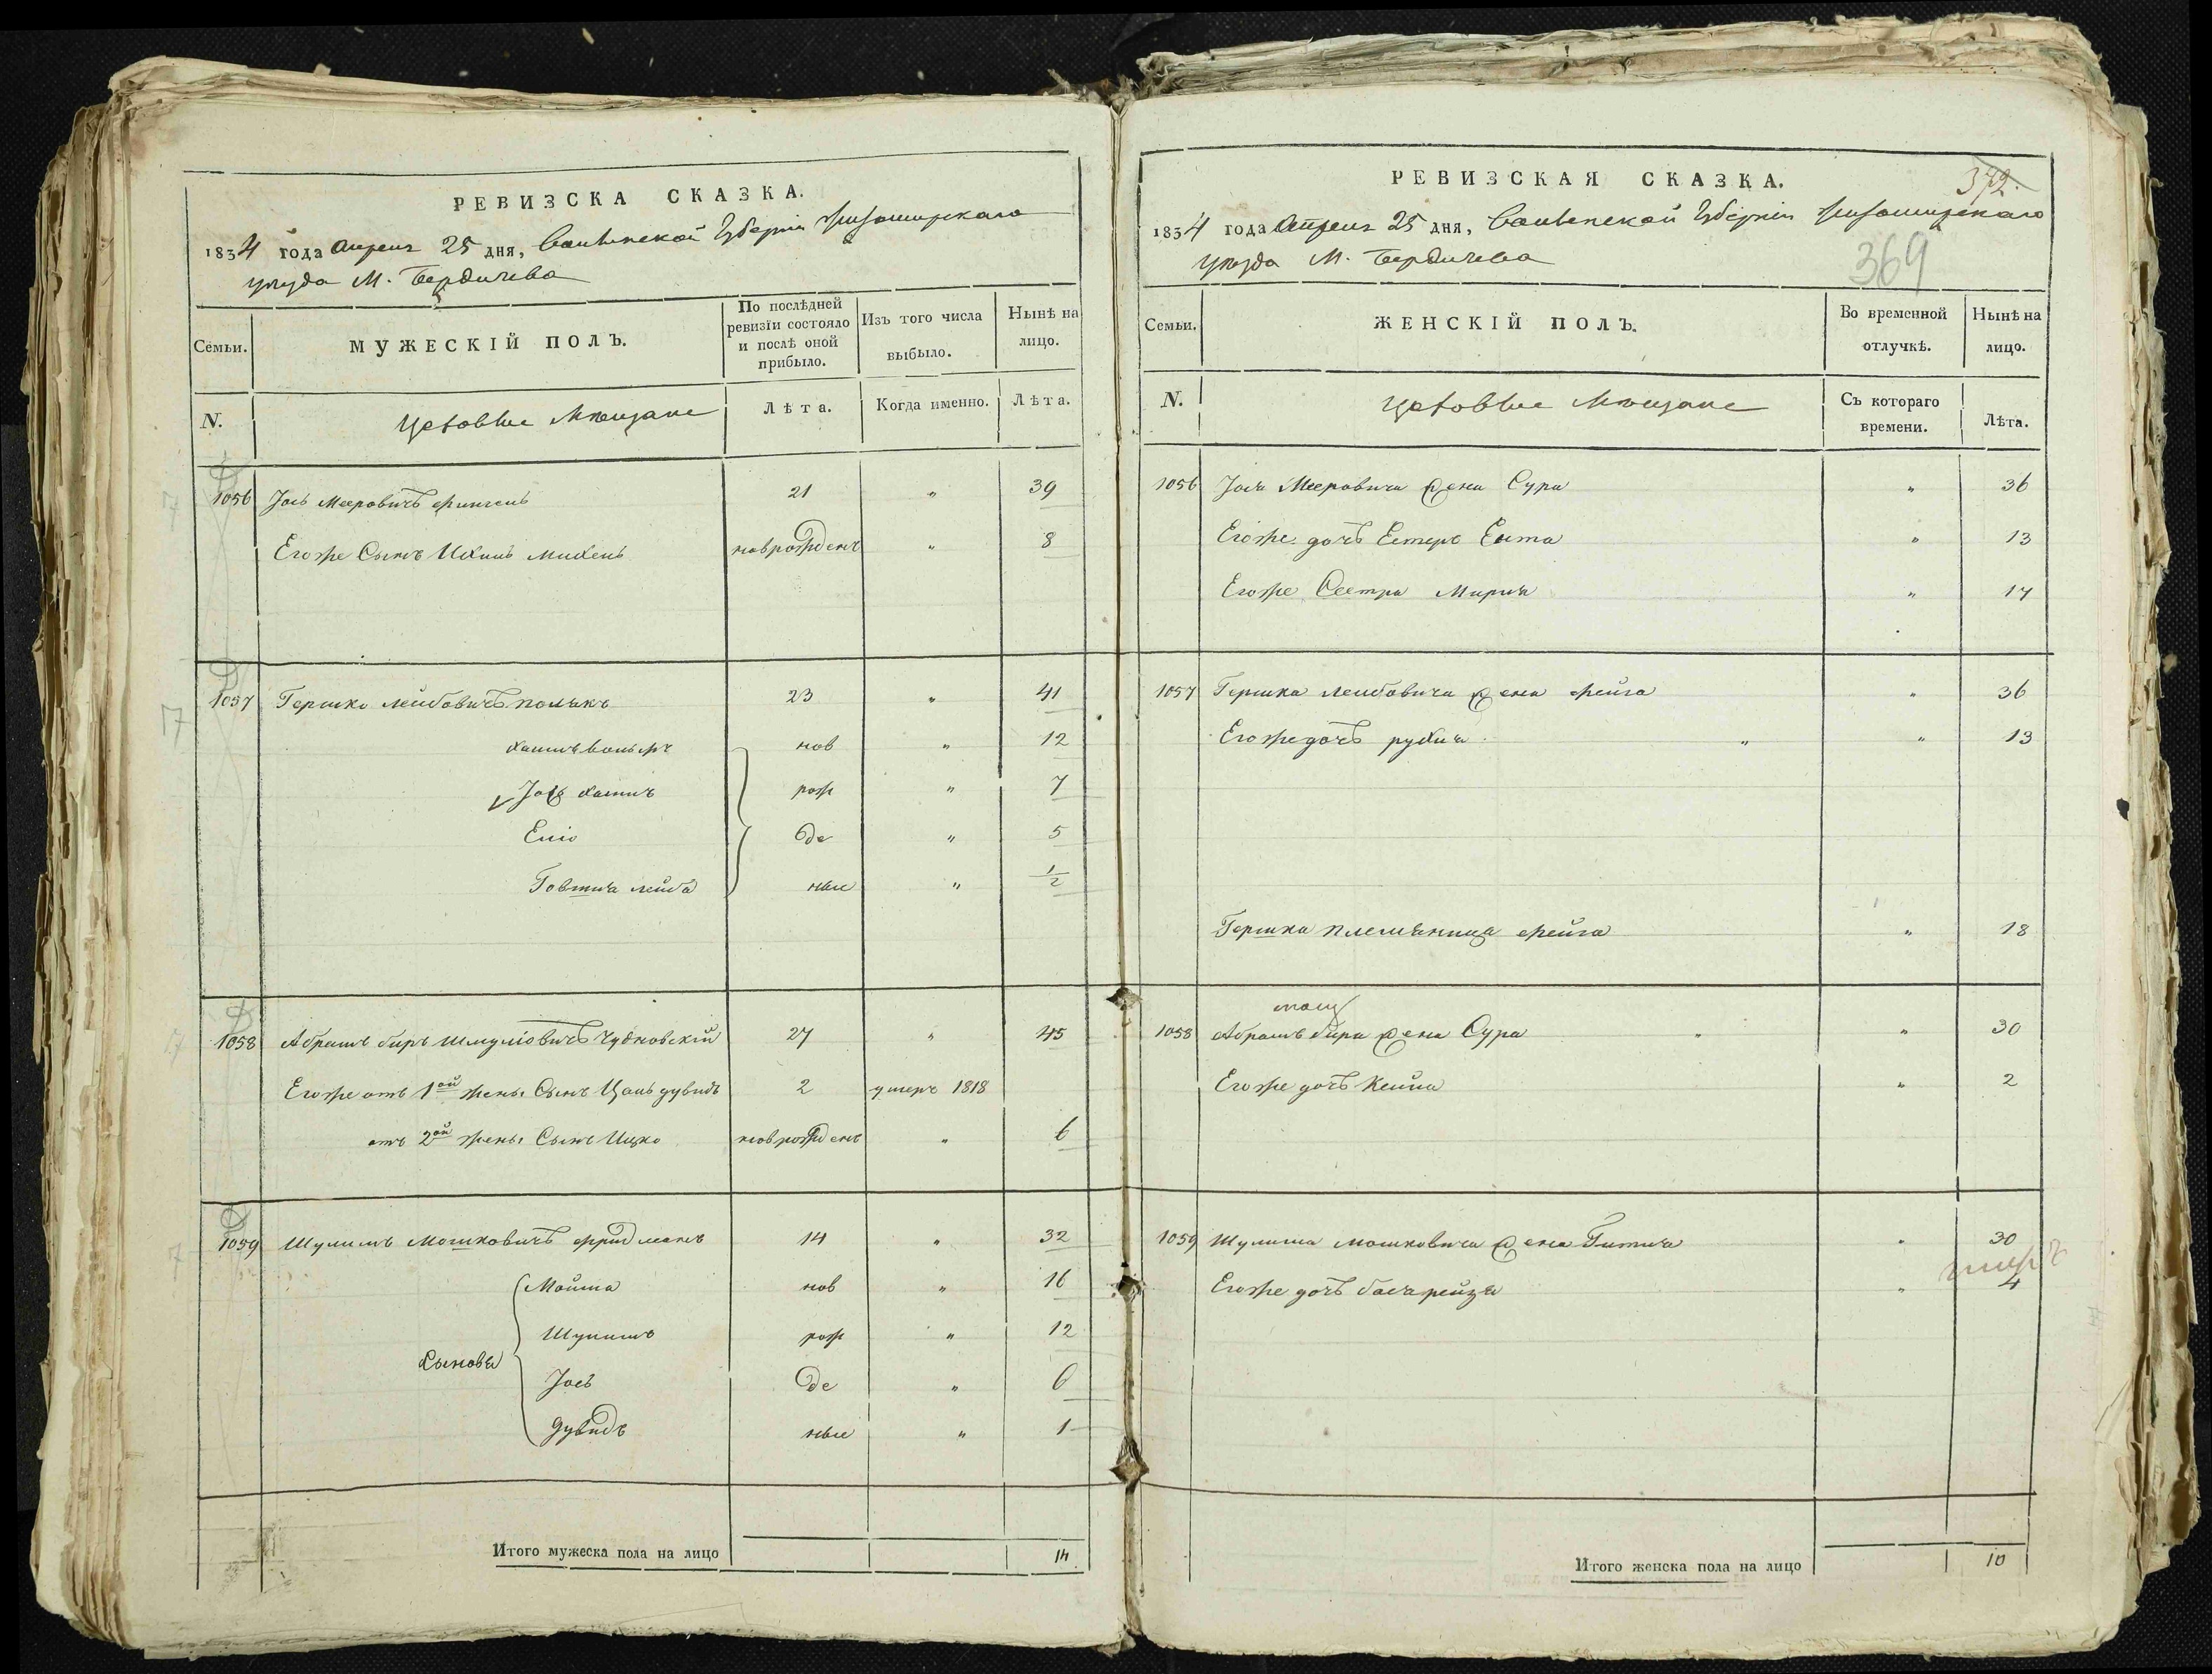 РЕВИЗСКА СКАЗКА.
1834 года Апреля 25 дня, Волынской Губернiи Житомирскаго
уезда М. Бердичева
Семьи.
МУЖЕСКІЙ ПОЛЪ.
По послѣдней ревизіи состояло и послѣ оной прибыло.
Изъ того числа выбыло.
Нынѣ на лицо.
N.
Цеховые Мещане
Лѣта.
Когда именно.
Лѣта.
1056 Іось Мееровичъ 21 " 39
Егоже Сынъ Ихиль Михель новрожденъ " 8
1057 Гершко Лейбовичъ Полякъ 23 " 41
Хаимъ Вольфъ нов " 12
Іось Хаимъ рож " 7
Еліо де " 5
Лейба ные " 1/2
1058 Абрамъ Беръ Шмуліовичъ Чудновскій 27 " 45
Егоже отъ 1ой жены Сынъ Цаль Дувидъ 2 умеръ 1818
отъ 2ой жены Сынъ Ицко новрожденъ " 6
1059 Шулимъ Мошковичъ Фридманъ 14 " 32
Сыновья
нов " 16
рож " 12
Іось де "
Дувидъ ные " 1
Итого мужеска пола на лицо 14
РЕВИЗСКАЯ СКАЗКА.
372.
1834 года Апреля 25 дня, Волынской Губернiи Житомирскаго
уезда М. Бердичева
369
Семьи.
ЖЕНСКІЙ ПОЛЪ.
Во временной отлучкѣ.
Нынѣ на лицо.
N.
Цеховые Мещане
Съ котораго времени.
Лѣта.
1056 Іося Мееровича жена Сура " 36
Егоже дочь Естеръ Ента " 13
Егоже Сестра Мирля " 17
1057 Гершка Лейбовича жена Фейга " 36
Егоже дочь Рухля " " 13
Гершка племяница Фейга " 18
1058 Абрамъ Бера жена Сура " " 30
Егоже дочь Кейла " 2
1059 Шулима Мошковича жена Гитля " 30
Егоже дочь Бася Рейзя " 4
Итого женска пола на лицо 10